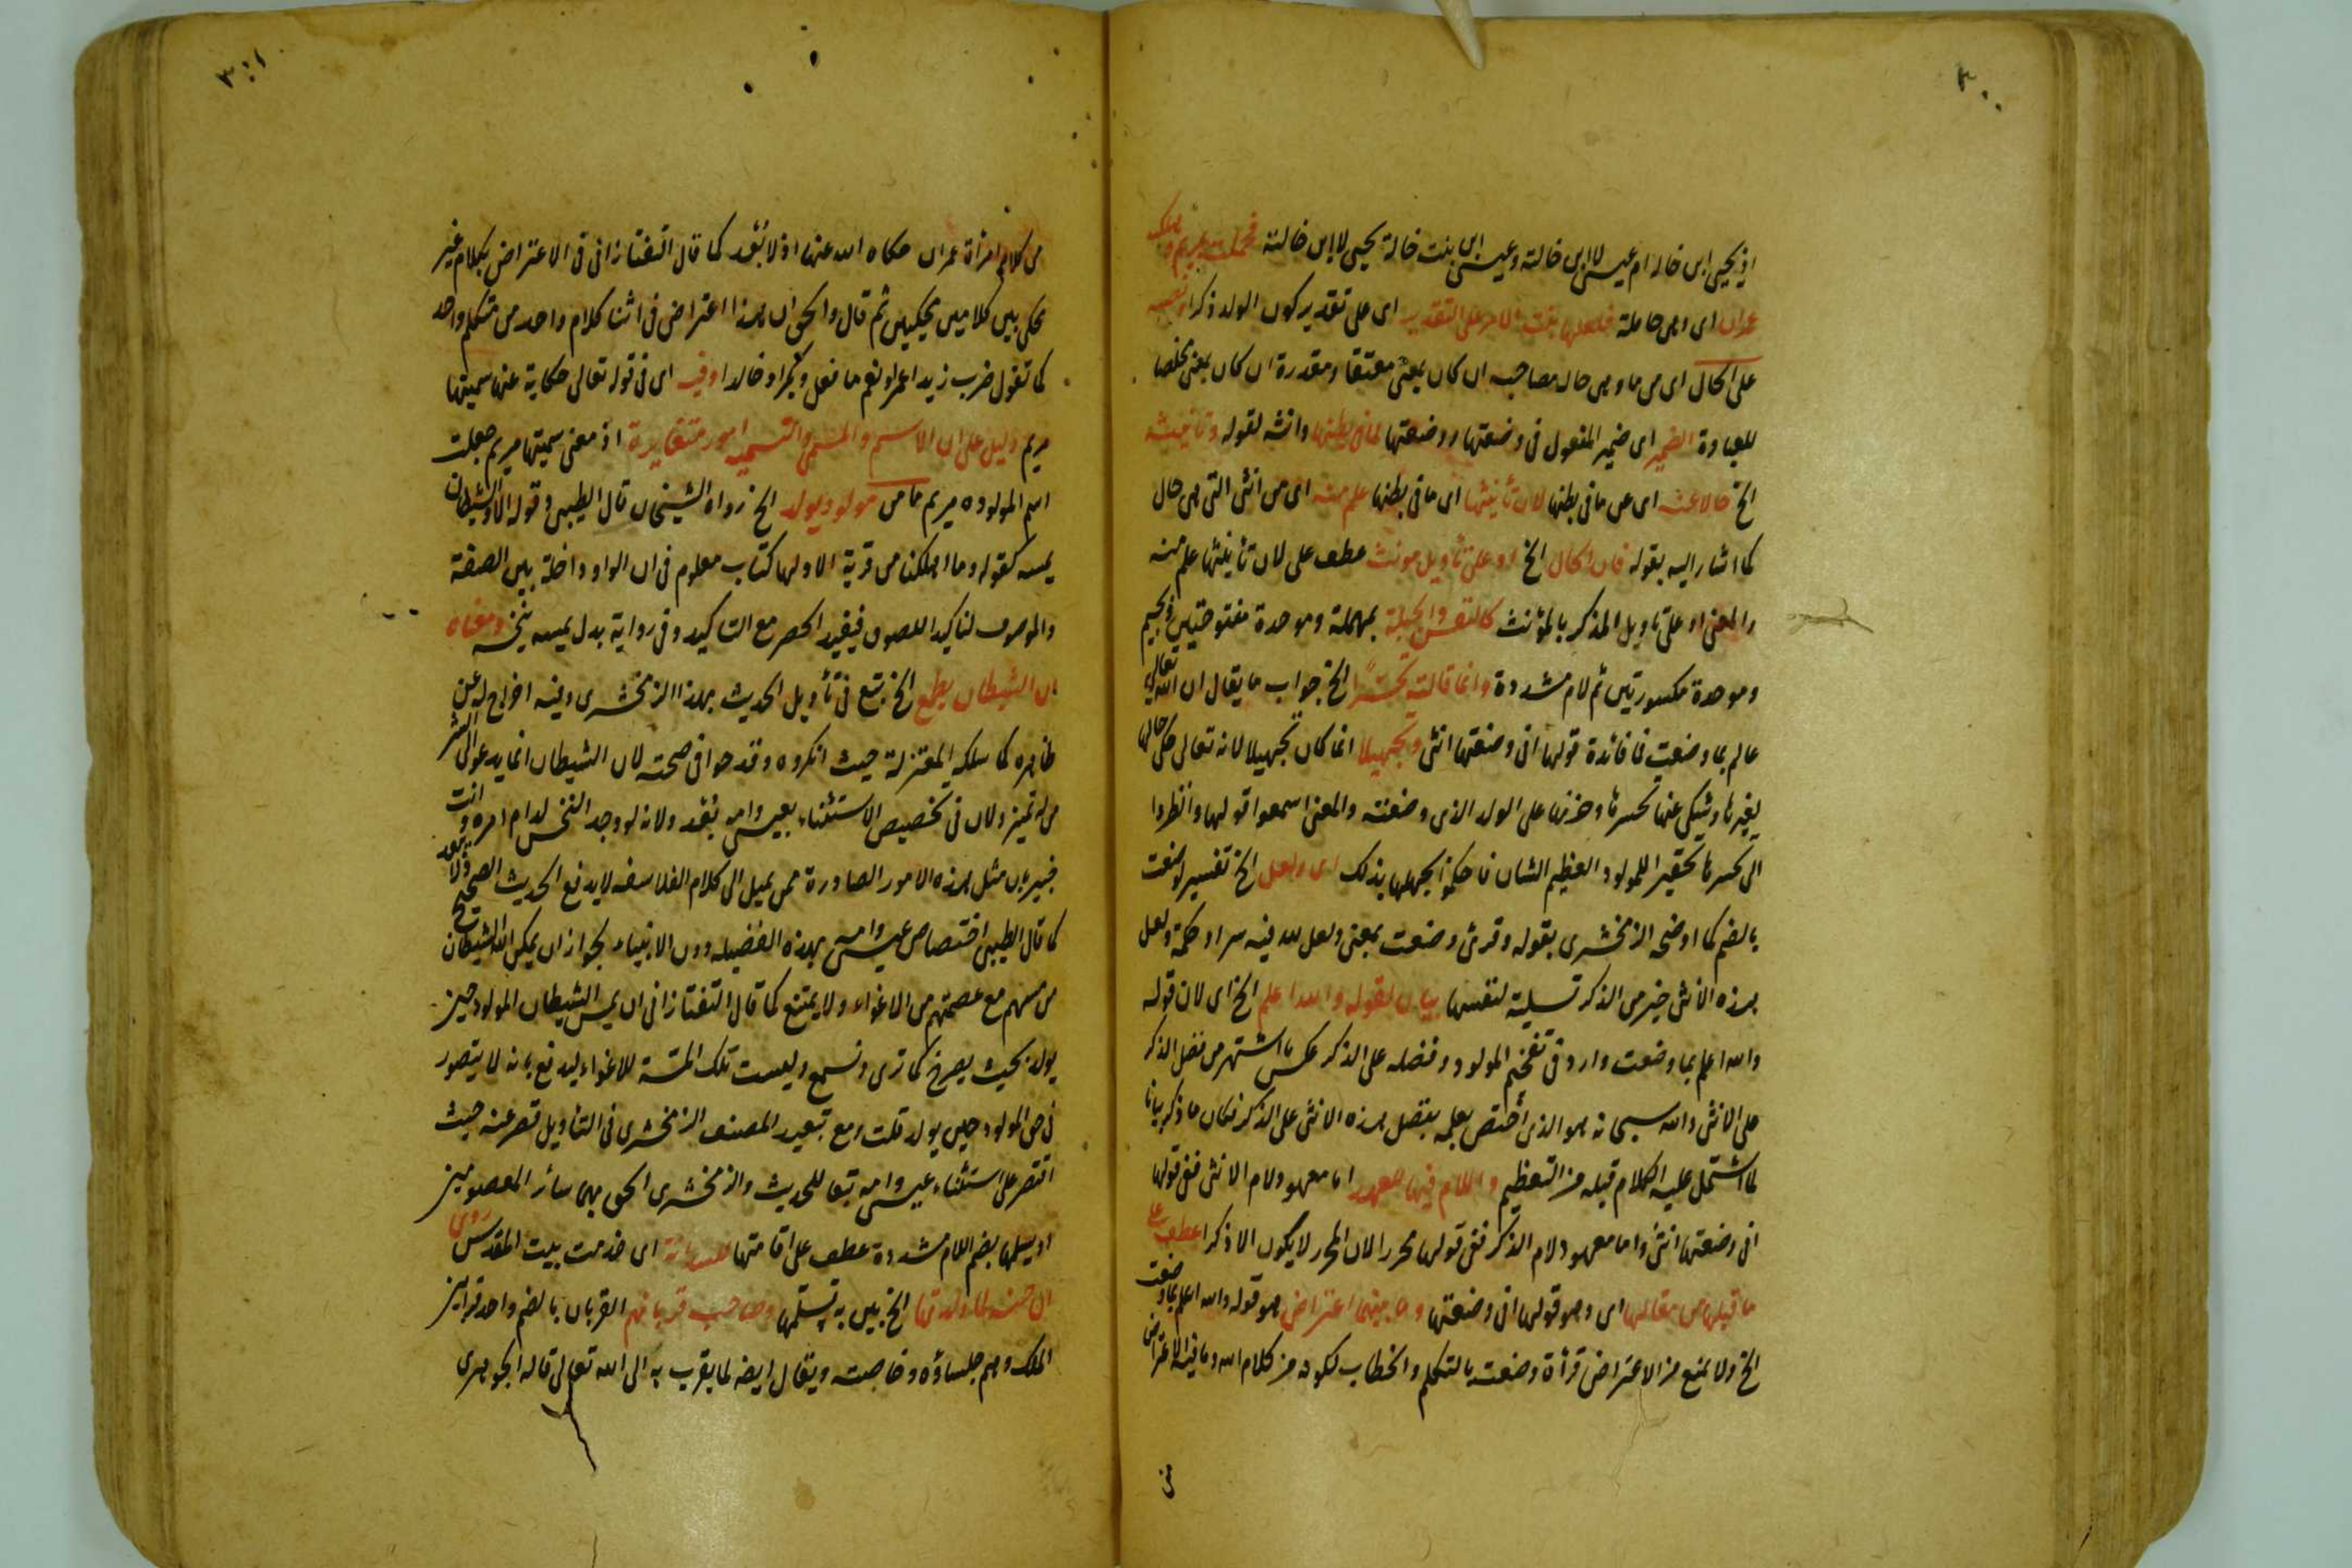 ٣٠٠
اذ يحيى ابن خالة ام عيسى لا ابن خالته وعيسى ابن بنت خالة يحيى لا ابن خالته فحملت بمريم وهلك
عمران اى وهى حاملة فلعلها بنت الامر على التقدير اى على تقدير كون الولد ذكرا ونصبه
على الحال اى من ما وهى حال مصاحبه ان كان بمعنى معتقا ومقدرة ان كان بمعنى مخلصا
للعبادة الضمير اى ضمير المفعول فى وضعتها ووضعتها لما فى بطنها وانثه لقوله وتانيثه
الخ حالا عنه اى عن ما فى بطنها لان تأنيثها اى ما فى بطنها علم منه اى من انثى التى هى حال
كما اشار اليه بقوله فان الحال الخ او على تأويل مونث عطف على لان تأنيثها علم منه
والمعنى او على تاويل المذكر بالمؤنث كالنفس والحبلة بمهملة وموحدة مفتوحتين او بجيم
وموحدة مكسورتين ثم لام مشددة وانما قالته تحسرا الخ جواب ما يقال ان الله تعالى
عالم بما وضعت فما فائدة قولها انى وضعتها انثى وتجهيلا انما كان تجهيلا لانه تعالى حكى حالها
لغيرها وشكى عنها تحسرها وحزنها على الولد الذى وضعته والمعنى اسمعوا قولها وانظروا
الى تحسرها تحقيرا للمولود العظيم الشان فاحكموا بجهلها بذلك اى ولعل الخ تفسير لوضعت
بالضم كما اوضحه الزمخشرى بقوله وقرئ وضعت بمعنى ولعل لله فيه سرا وحكمة ولعل
هذه الانثى خير من الذكر تسلية لنفسها بيان لقوله والله اعلم الخ اى لان قوله
والله اعلم بما وضعت وارد فى تفخيم المولود وفضله على الذكر عكس ما اشتهر من فضل الذكر
على الانثى والله سبحانه هو الذى اختص بعلمه بفضل هذه الانثى على الذكر فكان ما ذكر بيانا
لما اشتمل عليه الكلام قبله من التعظيم واللام فيهما للعهد اما معهود لام الانثى ففى قولها
انى وضعتها انثى واما معهود لام الذكر ففى قولها محررا لان المحرر لا يكون الا ذكرا عطف على
ما قبلها من مقالها اى وهو قولها انى وضعتها وما بينهما اعتراض هو قوله والله اعلم بما وضعت
الخ ولا يمنع من الاعتراض قرأة وضعت بالتكلم والخطاب لكونه من كلام الله وما فيه الاعتراض
٣٠١
من كلام امرأة عمران حكاه الله عنها اذ لا بعد كما قال التفتازانى فى الاعتراض بكلام غير
محكى بين كلامين محكيين ثم قال والحق ان هذا اعتراض فى اثنا كلام واحد من متكلم واحد
كما تقول ضرب زيدا عمرا ونعم ما فعل وبكرا وخالدا وفيه اى فى قوله تعالى حكاية عنها سميتها
مريم دليل على ان الاسم والمسمى والتسمية امور متغايرة اذ معنى سميتها مريم جعلت
اسم المولوده مريم ما من مولود يولد الخ رواه الشيخان قال الطيبى وقوله الا والشيطان
يمسه كقوله وما اهلكنا من قرية الا ولها كتاب معلوم فى ان الواو داخلة بين الصفة
والموصوف لتاكيد اللصوق فيفيد الحصر مع التاكيد وفى رواية بدل يمسه ينخسه ومعناه
ان الشيطان يطمع الخ تبع فى تأويل الحديث بهذا الزمخشرى وفيه اخراج له عن
ظاهره كما سلكه المعتزلة حيث انكروه وقدحوا فى صحته لان الشيطان انما يدعو الى الشر
من له تميز ولان فى تخصيص الاستثناء بعيسى وامه بعد ولانه لو وجد النخس لدام امره وانت
خبير بان مثل هذه الامور الصادرة ممن يميل الى كلام الفلاسفه لا يدفع الحديث الصحيح ولا
كما قال الطيبى اختصاص عيسى وامه بهذه الفضيله دون الانبياء بجواز ان يمكن الله الشيطان
من مسهم مع عصمتهم من الاغواء ولا يمتنع كما قال التفتازانى ان يمس الشيطان المولود حين
يولد بحيث يصرخ كما ترى وتسمع وليست تلك المسة للاغواء ليدفع بانه لا يتصور
فى حق المولود حين يولد قلت ومع تبعيد المصنف الزمخشرى فى التاويل قصر عنه حيث
اقتصر على استثناء عيسى وامه تبعا للحديث والزمخشرى الحق بهما سائر المعصومين
او يسلمها بضم اللام مشددة عطف على اقامتها للسدانة اى خدمت بيت المقدس روى
ان حنة لما ولدتها الخ بين به تسلمها وصاحب قربانهم القربان بالضم واحد قرابين
الملك وهم جلساؤه وخاصته ويقال ايضه لما يقرب به الى الله تعالى قاله الجوهرى